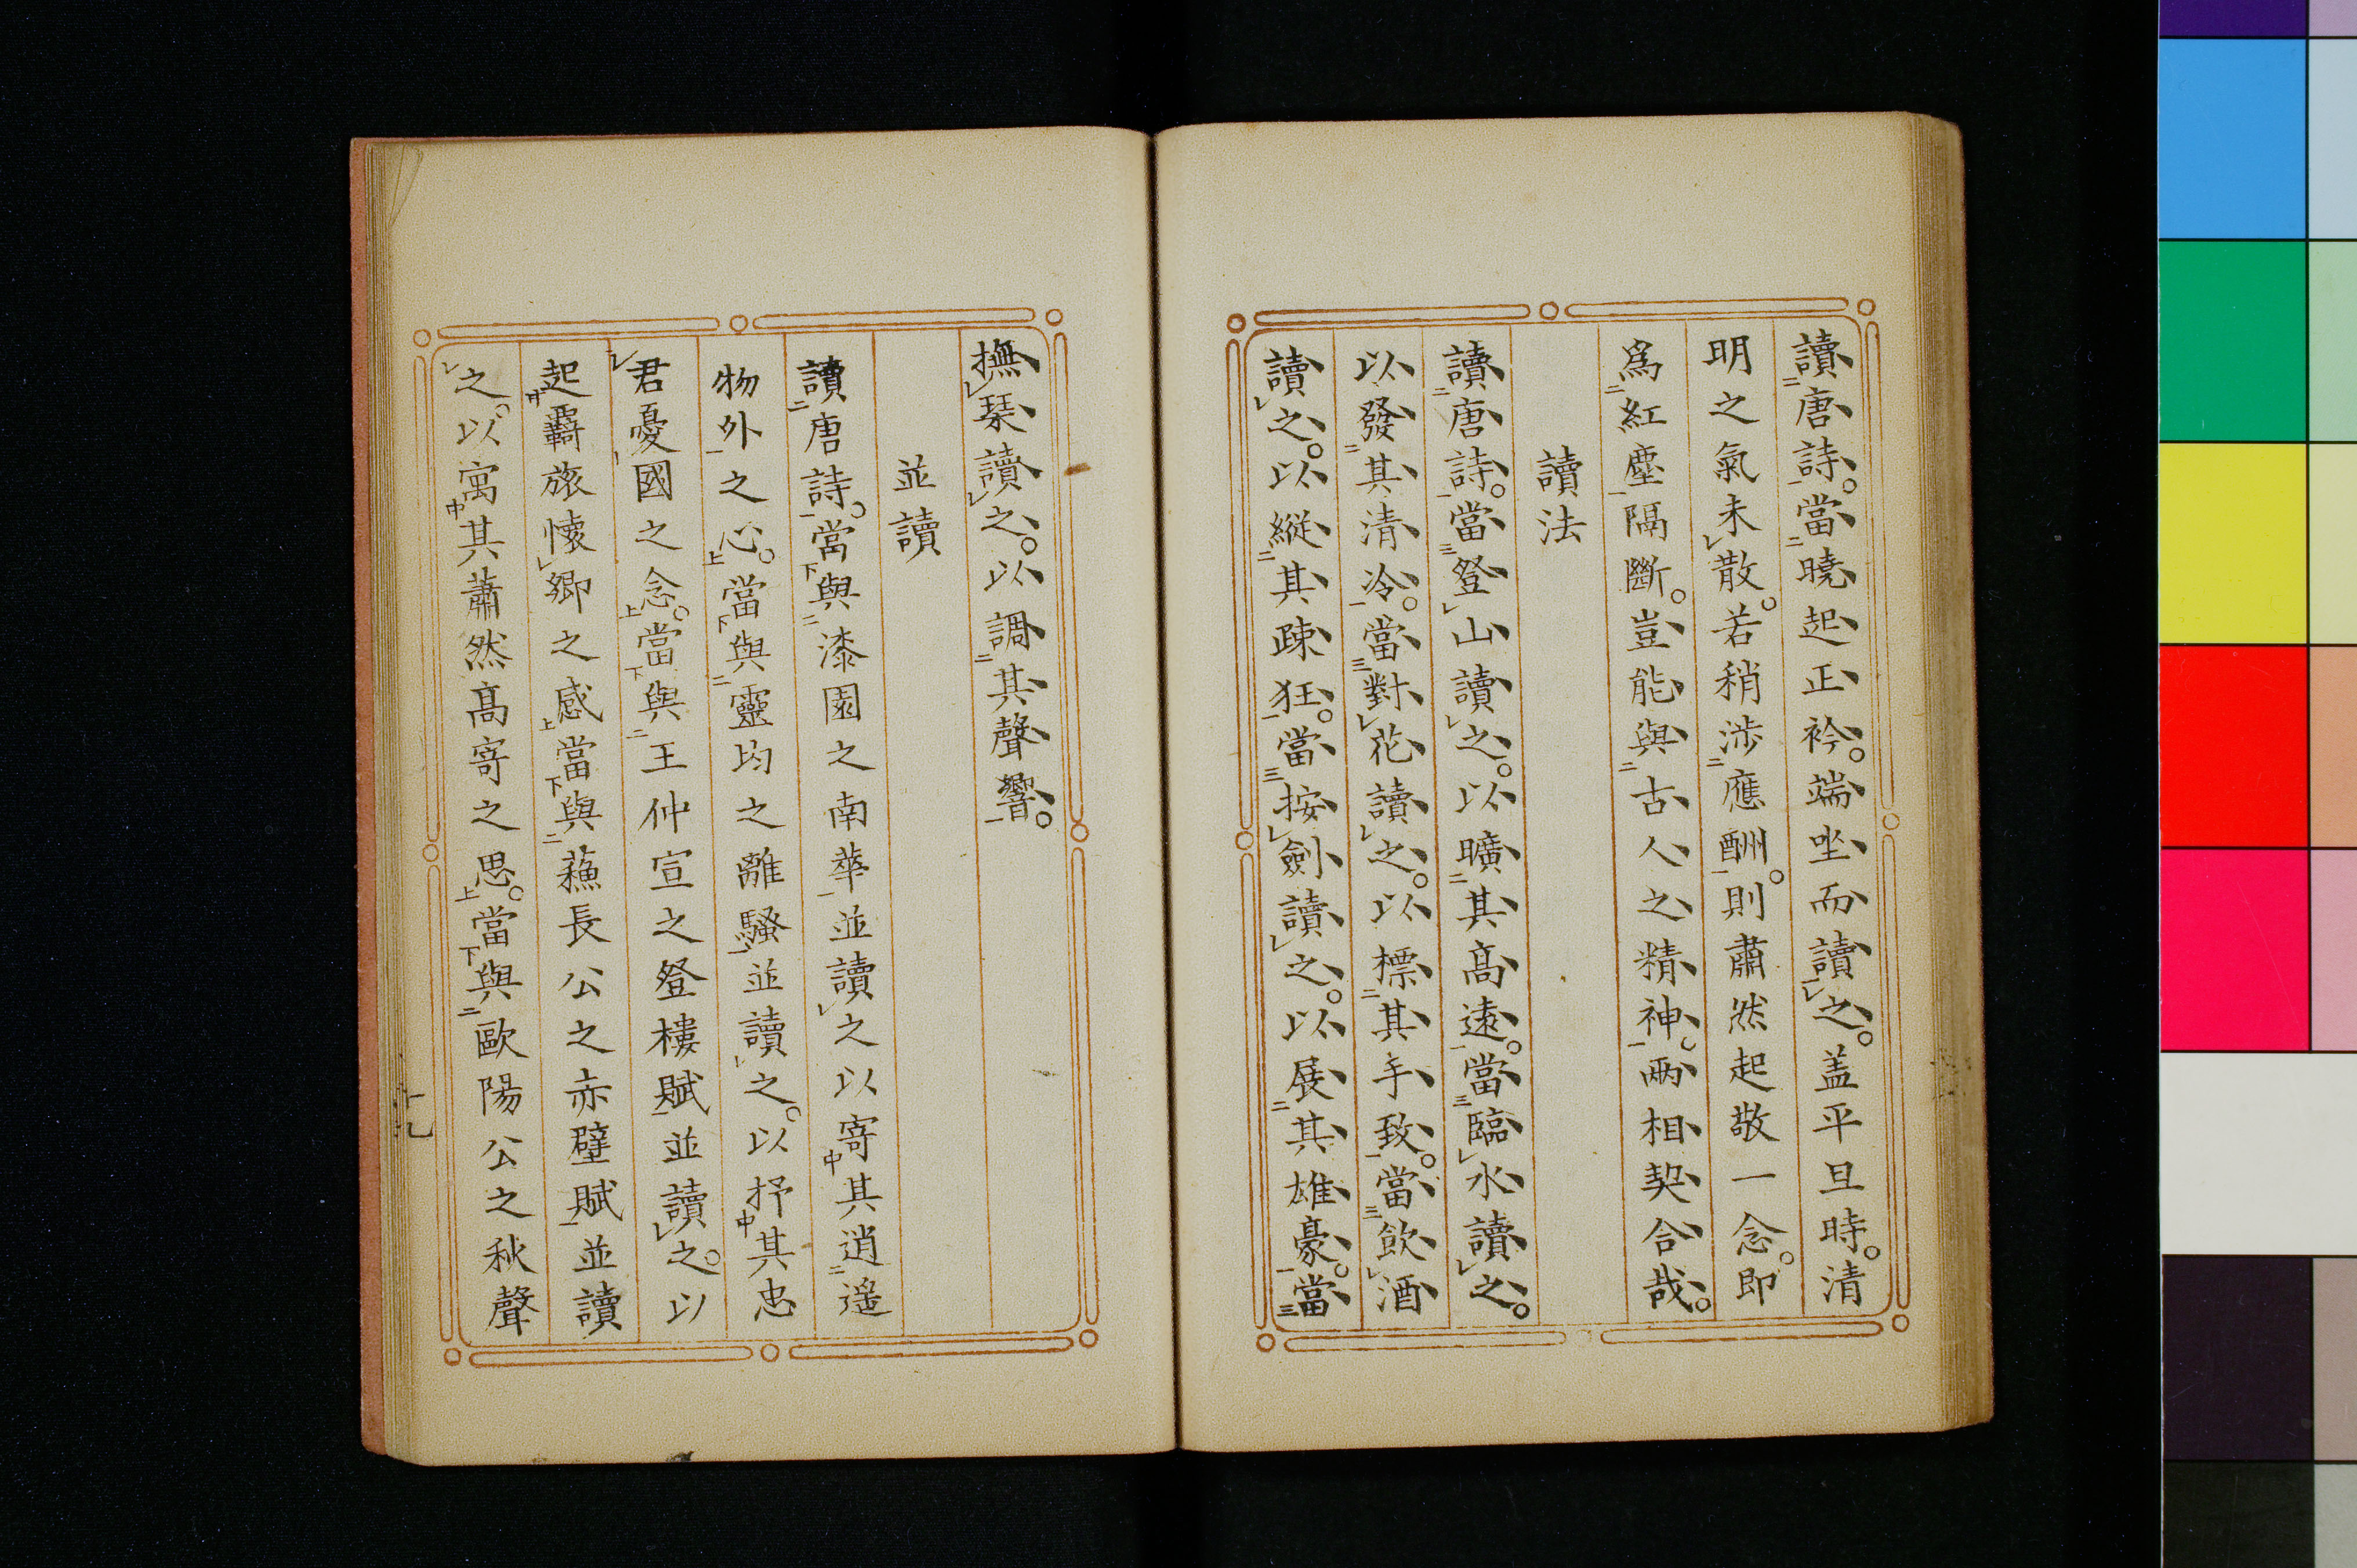 讀唐詩。當曉起正衿。端坐而讀之。盖平旦時。清
明之氣未散。若稍涉應酬。則肅然起敬一念。即
爲紅塵隔斷。豈能與古人之精神。兩相契合哉。
讀法
讀唐詩。當登山讀之。以曠其髙遠。當臨水讀之。
以發其清冷。當對花讀之。以標其丰致。當飲酒
讀之。以縱其踈狂。當按劍讀之。以展其雄豪。當
撫琹讀之。以調其聲響。
並讀
讀唐詩。當與漆園之南華並讀之以寄其逍遥
物外之心。當與靈均之離騷並讀之。以抒其忠
君憂國之念。當與王仲宣之登樓賦並讀之。以
起覊旅懐鄉之感當與蘓長公之赤壁賦並讀
之。以寓其蕭然髙寄之思。當與歐陽公之秋聲